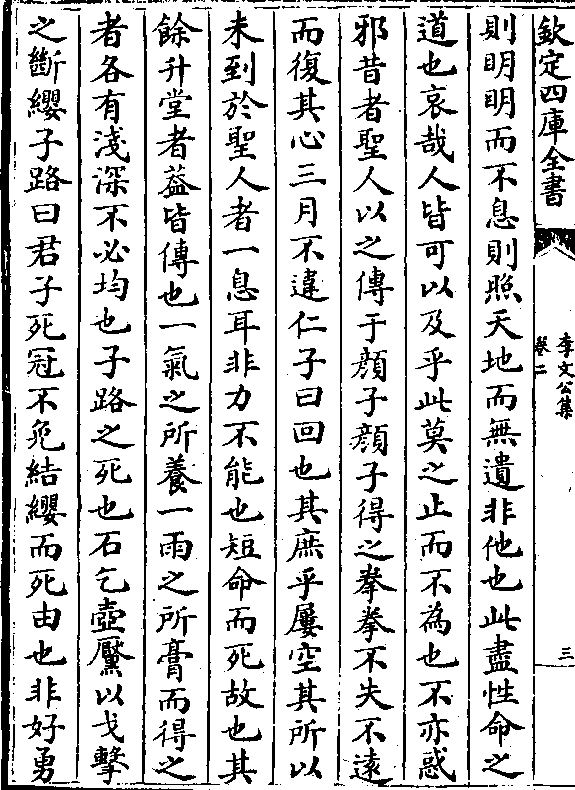 欽定四庫全書
李文公集
卷二
三
則明明而不息則照天地而無遺非他也此盡性命之
道也哀哉人皆可以及乎此莫之止而不為也不亦惑
邪昔者聖人以之傳于顔子顔子得之拳拳不失不遠
而復其心三月不違仁子曰回也其庶乎屢空其所以
未到於聖人者一息耳非力不能也短命而死故也其
餘升堂者葢皆傳也一氣之所養一雨之所膏而得之
者各有淺深不必均也子路之死也石乞壺黶以戈擊
之斷纓子路曰君子死冠不免結纓而死由也非好勇